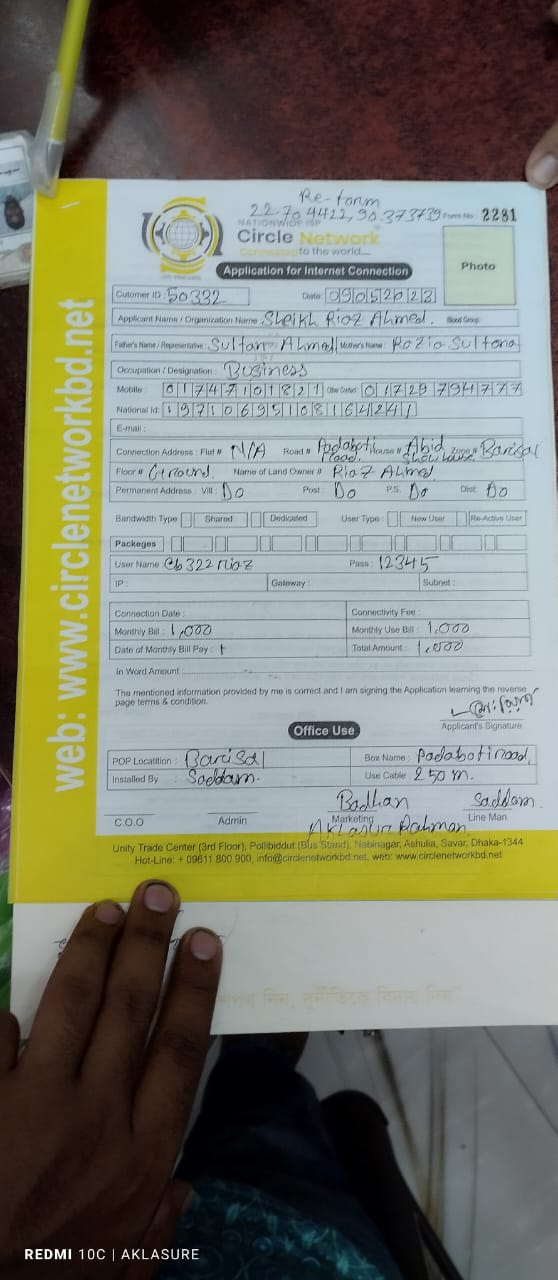 Re-Form
22.704422, 90.373739
Form No : 2281
NATIONWIDE ISP
Circle Network
Connected to the world....
Application for Internet Connection
Photo
web: www.circlenetworkbd.net
Cutomer ID : 50332 Date: 09052023
Applicant Name / Organization Name : Sheikh Riaz Ahmed. Blood Group :
Father's Name / Representative : Sultan Ahmed Mother's Name : Rozia Sultana
Occupation / Designation : Business
Mobile : 01747101821 Other Contact : 01729794777
National Id: 19710695108164241
E-mail :
Connection Address : Flat # N/A Road # Padaboti Road. House # Abid Show house Zone # Barisal
Floor # Ground. Name of Land Owner # Riaz Ahmed
Permanent Address : Vill : Do Post : Do P.S. Do Dist: Do
Bandwidth Type Shared Dedicated User Type : New User Re-Active User
Packages
User Name : Cb322riaz Pass : 12345
IP : Gateway : Subnet :
Connection Date : Connectivity Fee :
Monthly Bill : 1,000 Monthly Use Bill : 1,000
Date of Monthly Bill Pay : 1 Total Amount : 1,000
In Word Amount :
The mentioned information provided by me is correct and I am signing the Application learning the reverse
page terms & condition.
Applicant's Signature
Office Use
POP Locatition : Barisal Box Name : Padabotiroad,
Installed By : Saddam. Use Cable : 250 m.
Badhan Saddam.
C.O.O Admin Marketing Line Man
Aklasur Rahman
Unity Trade Center (3rd Floor), Pollibiddut (Bus Stand), Nabinagar, Ashulia, Savar, Dhaka-1344
Hot-Line: + 09611 800 900, info@circlenetworkbd.net, web: www.circlenetworkbd.net
REDMI 10C | AKLASURE